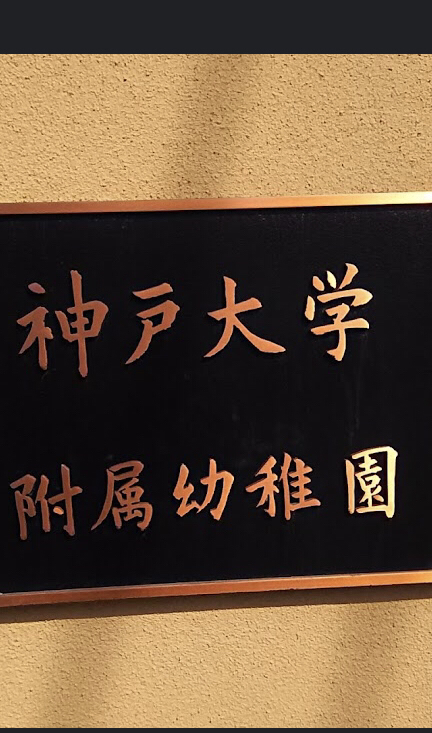 神戸大学
附属幼稚園